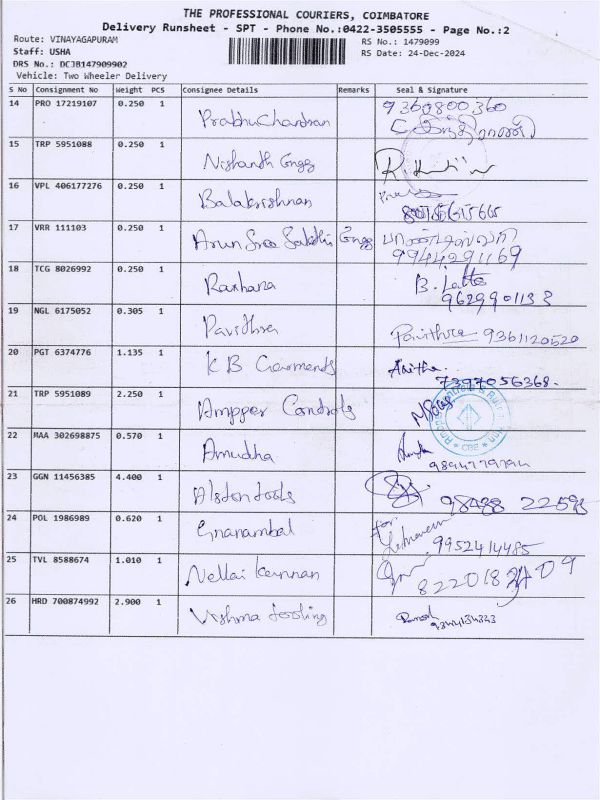 THE PROFESSIONAL COURIERS, COIMBATORE
Delivery Runsheet - SPT - Phone No.:0422-3505555 - Page No.:2
Route: VINAYAGAPURAM RS No.: 1479099
Staff: USHA RS Date: 24-Dec-2024
DRS No.: DCJB147909902
Vehicle: Two Wheeler Delivery
S No Consignment No Weight PCS Consignee Details Remarks Seal & Signature
14 PRO 17219107 0.250 1 Prabhu Chandran 9360800360
15 TRP 5951088 0.250 1 Nishanth Engg
16 VPL 406177276 0.250 1 Balakrishnan
17 VRR 111103 0.250 1 Arun Sree Sakthi Engg
9944291169
18 TCG 8026992 0.250 1 Ranjana B. Latha
9629901133
19 NGL 6175052 0.305 1 Pavithra Pavithra 9361120520
20 PGT 6374776 1.135 1 K B Garments Anitha
7397056368.
21 TRP 5951089 2.250 1 Ampper Controls
CBE
22 MAA 302698875 0.570 1 Amudha
23 GGN 11456385 4.400 1 Alston tools 98488 22593
24 POL 1986989 0.620 1 Gnanambal for
9952414485
25 TVL 8588674 1.010 1 Nellai Kannan
26 HRD 700874992 2.900 1 Vishma tooling Ramesh
9344134333